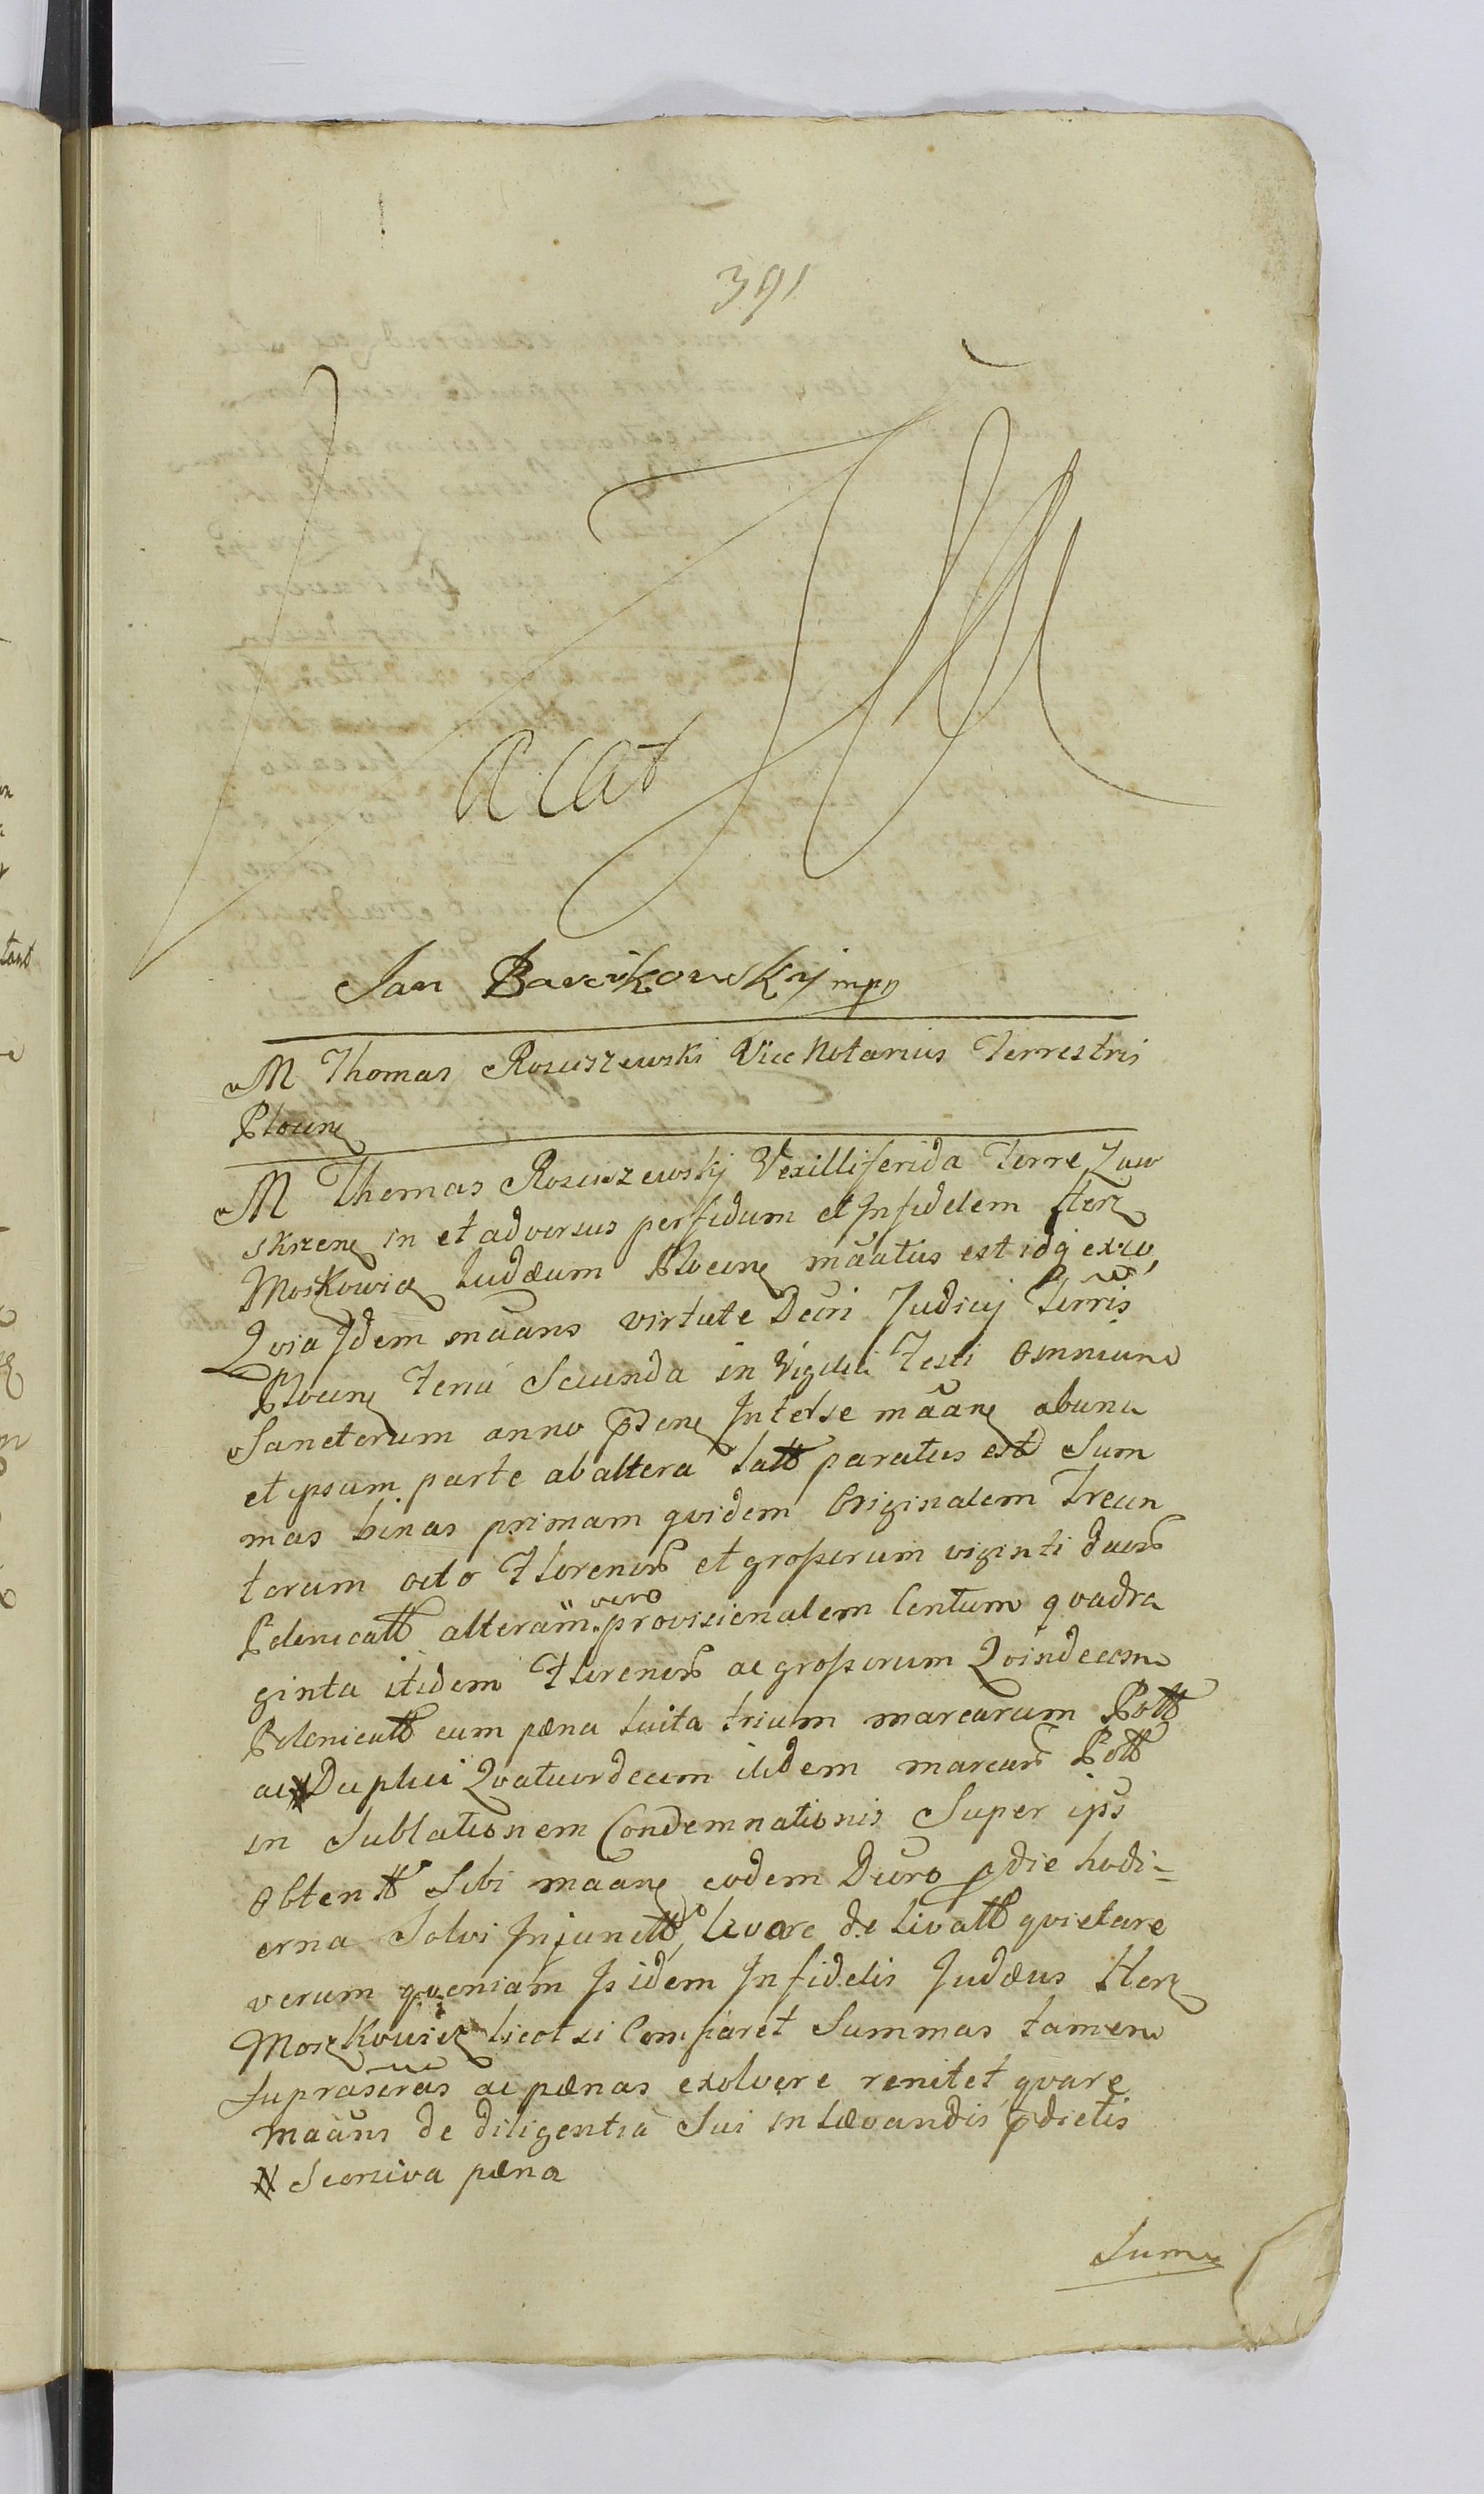 391
Vacat
Jan Barcikowsky mpp
M Thomas Rosciszewski Vice Notarius Terrestris
Plocens
M Thomas Rosciszewskj Vexilliferida Terre Zaw
skrzens in et adversus perfidum et Infidelem Herz
Moskowicz Judæum Plocens mãatus est idq exzo,
Qvia Idem mãans virtute Decri Judicij Terris
Plocens Feria Secunda in Vigilii Festi Omnium
Sanctorum anno psens Inter se mãans ab una
et ipsum parte ab altera latt paratus est Sum
mas binas primam qvidem Originalem Trecen
torum octo Florenor et grosſorum viginti duor
Polonicatt alteram vero provisionalem Centum qvadra
ginta itidem Florenor ac grosſorum Qvindecem
Polonicatt cum pæna luita trium marcarum Pott
ac Duplici Qvatuordecem itidem marcar Pott
in Sublationem Condemnationis Super ips
obtentt Sibi maans eodem Decro p die hodi=
erna Solvi Injunctt levare de livatt qvietare
verum qvoniam Is idem Infidelis Judæus Herz
Moszkowicz licet si Comparet Summas tamen
suprascras ac pænas exolvere renitet qvare
mãans de diligentia Sui in Lævandis pdictis
N Seorsiva pæna
Sumis